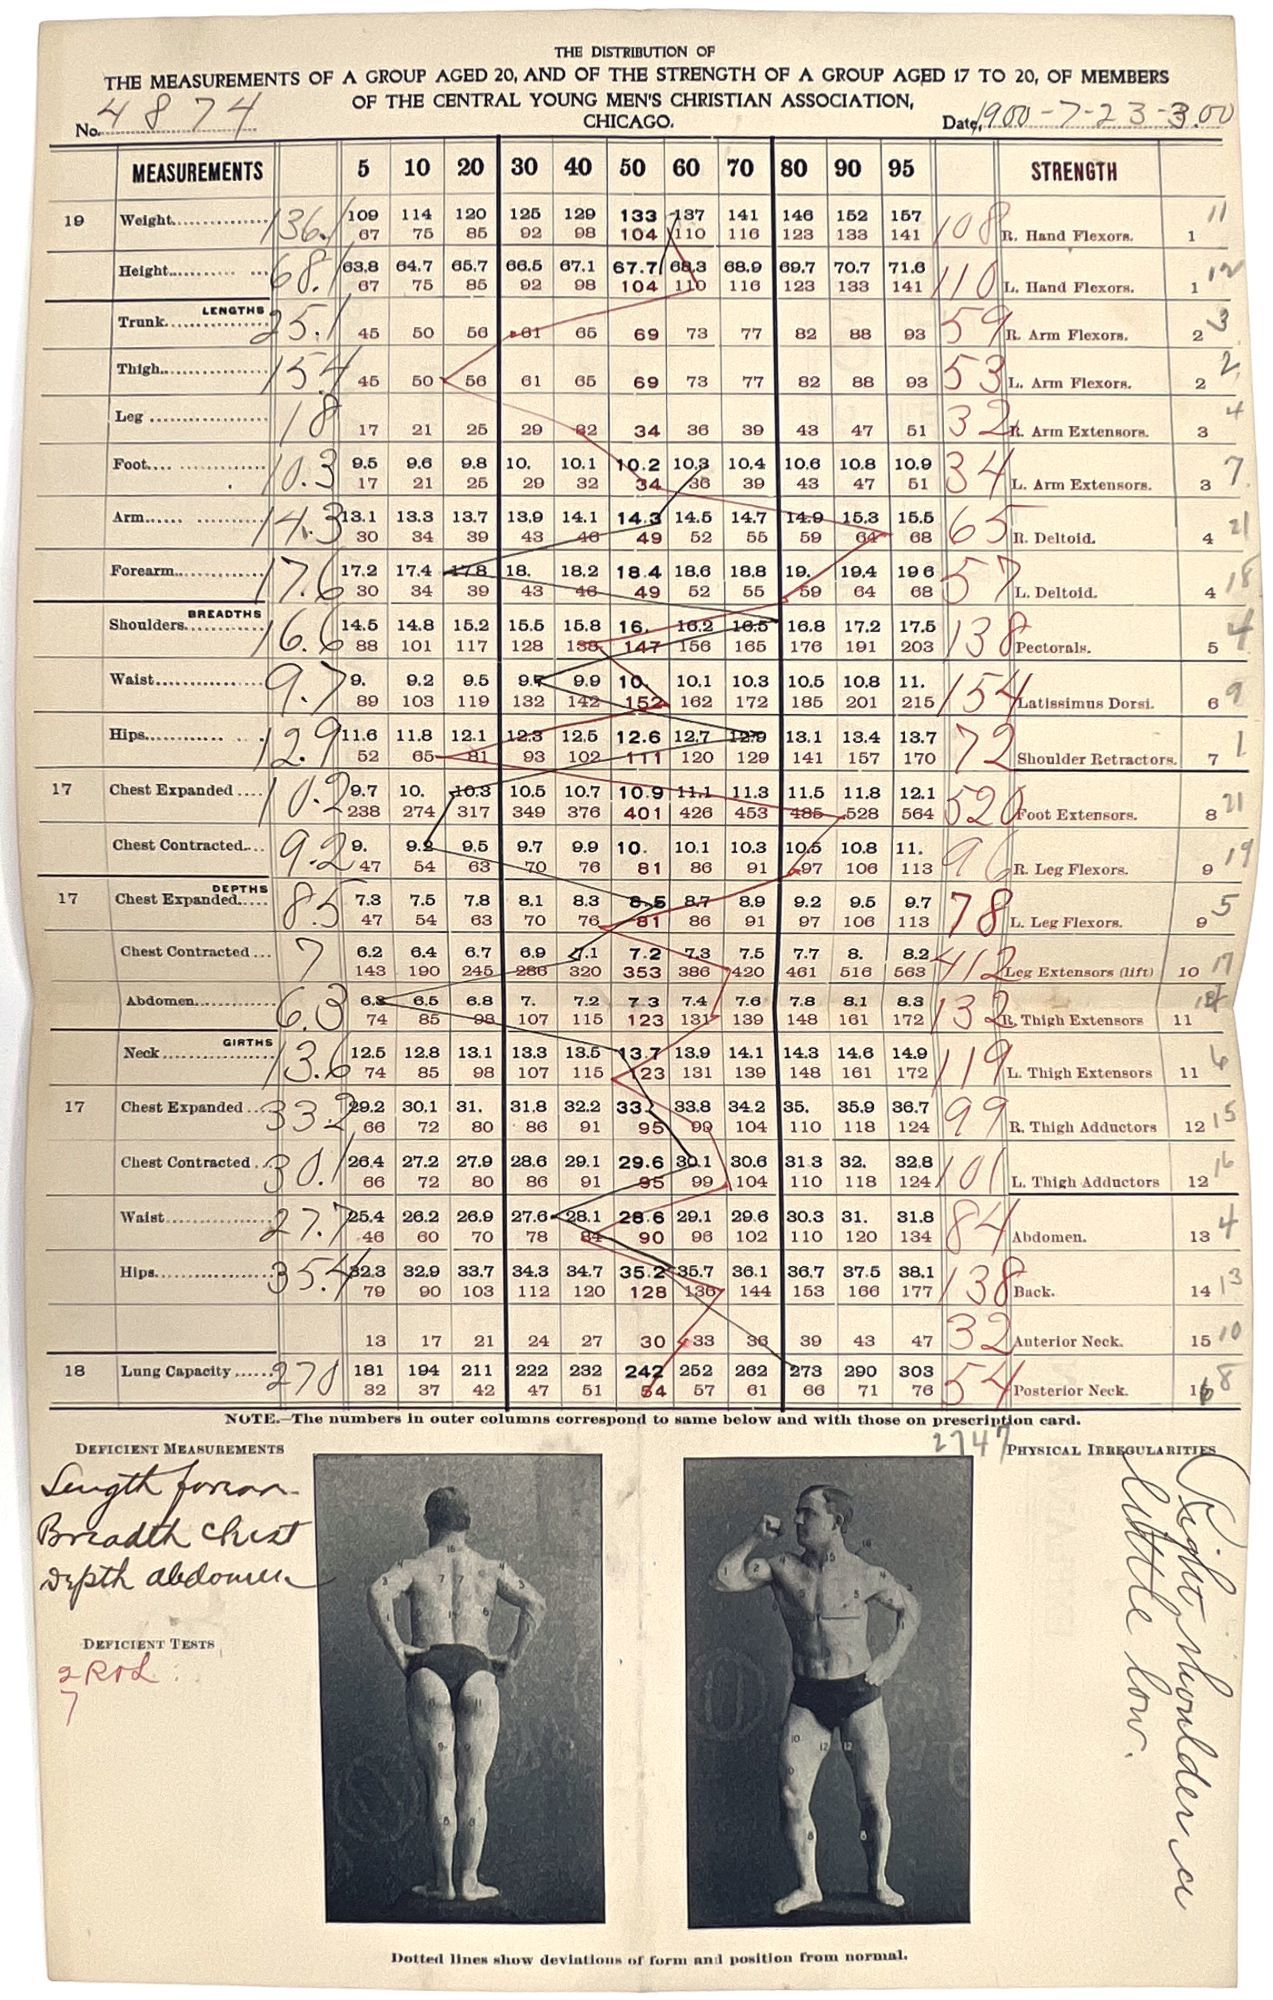 THE DISTRIBUTION OF
THE MEASUREMENTS OF A GROUP AGED 20, AND OF THE STRENGTH OF A GROUP AGED 17 TO 20, OF MEMBERS
OF THE CENTRAL YOUNG MEN'S CHRISTIAN ASSOCIATION,
No. 4874 CHICAGO. Date, 1900-7-23-3.00
MEASUREMENTS 5 10 20 30 40 50 60 70 80 90 95 STRENGTH
19 Weight 136.1 109 114 120 125 129 133 137 141 146 152 157 11
67 75 85 92 98 104 110 116 123 133 141 108 R. Hand Flexors. 1
Height 68.1 63.8 64.7 65.7 66.5 67.1 67.7 68.3 68.9 69.7 70.7 71.6 12
67 75 85 92 98 104 110 116 123 133 141 110 L. Hand Flexors. 1
LENGTHS
Trunk 25.1 45 50 56 61 65 69 73 77 82 88 93 59 R. Arm Flexors. 2 3
Thigh 15.4 45 50 56 61 65 69 73 77 82 88 93 53 L. Arm Flexors. 2 2
Leg 18 17 21 25 29 32 34 36 39 43 47 51 32 R. Arm Extensors. 3 4
Foot 10.3 9.5 9.6 9.8 10. 10.1 10.2 10.3 10.4 10.6 10.8 10.9
17 21 25 29 32 34 36 39 43 47 51 34 L. Arm Extensors. 3 7
Arm 14.3 13.1 13.3 13.7 13.9 14.1 14.3 14.5 14.7 14.9 15.3 15.5
30 34 39 43 46 49 52 55 59 64 68 65 R. Deltoid. 4 21
Forearm 17.6 17.2 17.4 17.8 18. 18.2 18.4 18.6 18.8 19. 19.4 19 6
30 34 39 43 46 49 52 55 59 64 68 57 L. Deltoid. 4 18
BREADTHS
Shoulders 16.6 14.5 14.8 15.2 15.5 15.8 16. 16.2 16.5 16.8 17.2 17.5
88 101 117 128 138 147 156 165 176 191 203 138 Pectorals. 5 4
Waist 9.7 9. 9.2 9.5 9.7 9.9 10. 10.1 10.3 10.5 10.8 11.
89 103 119 132 142 152 162 172 185 201 215 154 Latissimus Dorsi. 6 9
Hips 12.9 11.6 11.8 12.1 12.3 12.5 12.6 12.7 12.9 13.1 13.4 13.7
52 65 81 93 102 111 120 129 141 157 170 72 Shoulder Retractors. 7 1
17 Chest Expanded 10.2 9.7 10. 10.3 10.5 10.7 10.9 11.1 11.3 11.5 11.8 12.1
238 274 317 349 376 401 426 453 485 528 564 520 Foot Extensors. 8 21
Chest Contracted 9.2 9. 9.2 9.5 9.7 9.9 10. 10.1 10.3 10.5 10.8 11.
47 54 63 70 76 81 86 91 97 106 113 96 R. Leg Flexors. 9 19
DEPTHS
17 Chest Expanded 8.5 7.3 7.5 7.8 8.1 8.3 8.5 8.7 8.9 9.2 9.5 9.7
47 54 63 70 76 81 86 91 97 106 113 78 L. Leg Flexors. 9 5
Chest Contracted 7 6.2 6.4 6.7 6.9 7.1 7.2 7.3 7.5 7.7 8. 8.2
143 190 245 286 320 353 386 420 461 516 563 412 Leg Extensors (lift) 10 17
Abdomen 6.3 6.3 6.5 6.8 7. 7.2 7.3 7.4 7.6 7.8 8.1 8.3
74 85 98 107 115 123 131 139 148 161 172 132 R. Thigh Extensors 11
GIRTHS
Neck 13.6 12.5 12.8 13.1 13.3 13.5 13.7 13.9 14.1 14.3 14.6 14.9
74 85 98 107 115 123 131 139 148 161 172 119 L. Thigh Extensors 11 6
17 Chest Expanded 33.2 29.2 30.1 31. 31.8 32.2 33. 33.8 34.2 35. 35.9 36.7
66 72 80 86 91 95 99 104 110 118 124 99 R. Thigh Adductors 12 15
Chest Contracted 30.1 26.4 27.2 27.9 28.6 29.1 29.6 30.1 30.6 31.3 32. 32.8
66 72 80 86 91 95 99 104 110 118 124 101 L. Thigh Adductors 12 16
Waist 27.7 25.4 26.2 26.9 27.6 28.1 28.6 29.1 29.6 30.3 31. 31.8
46 60 70 78 84 90 96 102 110 120 134 84 Abdomen. 13 4
Hips 35.4 32.3 32.9 33.7 34.3 34.7 35.2 35.7 36.1 36.7 37.5 38.1
79 90 103 112 120 128 136 144 153 166 177 138 Back. 14 13
13 17 21 24 27 30 33 36 39 43 47 32 Anterior Neck. 15 10
18 Lung Capacity 270 181 194 211 222 232 242 252 262 273 290 303
32 37 42 47 51 54 57 61 66 71 76 54 Posterior Neck. 16 8
NOTE.—The numbers in outer columns correspond to same below and with those on prescription card.
2747
DEFICIENT MEASUREMENTS
Length forearm
Breadth Chest
Depth abdomen
DEFICIENT TESTS
2 R & L
7
PHYSICAL IRREGULARITIES
Right shoulder a
little low.
Dotted lines show deviations of form and position from normal.